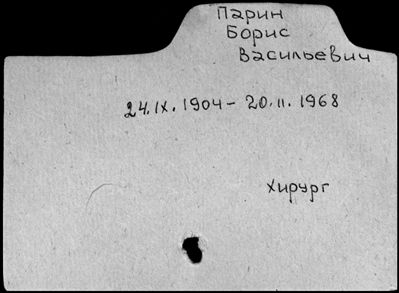 Парин
Борис
Васильевич
24.IX.1904 - 20.II.1968
хирург